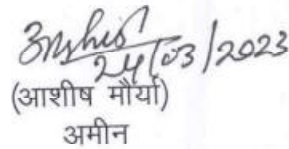 24/03/2023
(आशीष मौर्या)
अमीन